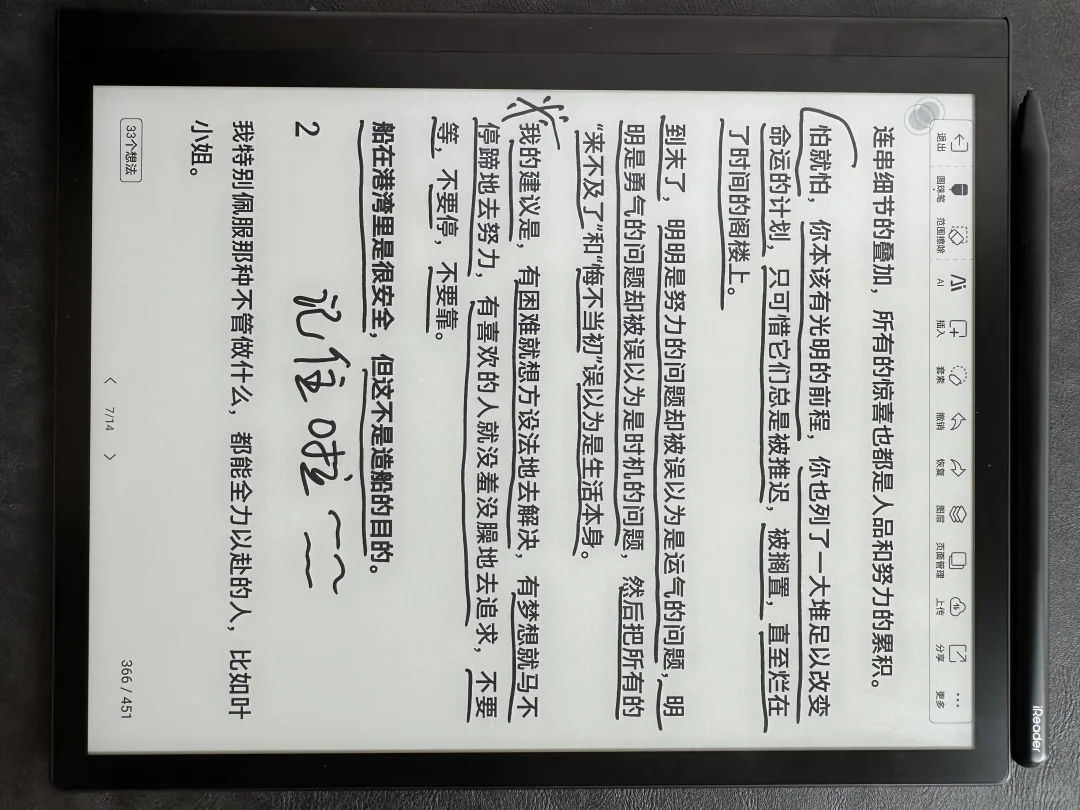 退出
圆珠笔
范围擦除
AI
插入
套索
撤销
恢复
图层
页面管理
上传
分享
更多
连串细节的叠加，所有的惊喜也都是人品和努力的累积。
怕就怕，你本该有光明的前程，你也列了一大堆足以改变
命运的计划，只可惜它们总是被推迟，被搁置，直至烂在
了时间的阁楼上。
到末了，明明是努力的问题却被误以为是运气的问题，明
明是勇气的问题却被误以为是时机的问题，然后把所有的
“来不及了”和“悔不当初”误以为是生活本身。
我的建议是，有困难就想方设法地去解决，有梦想就马不
停蹄地去努力，有喜欢的人就没羞没臊地去追求，不要
等，不要停，不要靠。
船在港湾里是很安全，但这不是造船的目的。
2
记住啦~~
我特别佩服那种不管做什么，都能全力以赴的人，比如叶
小姐。
33个想法
< 7/14 >
366 / 451
iReader